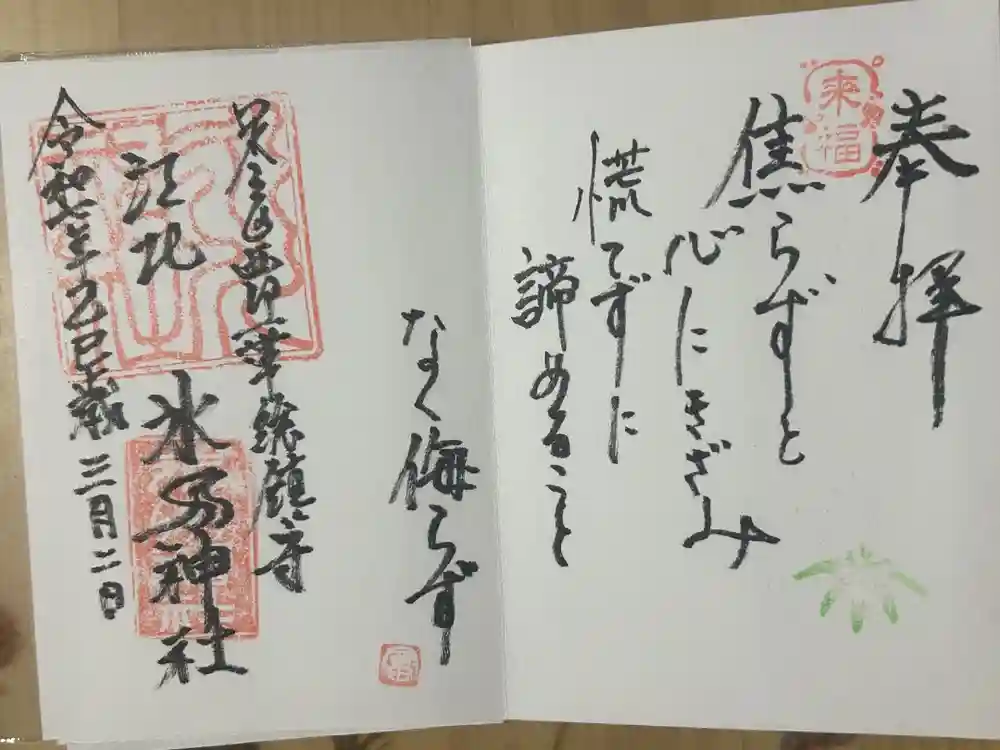 來福
奉拝
焦らずと
心にきざみ
慌てずに
諦めること
なく侮らず
総鎮守
江北
氷川神社
令和七年乙巳歳三月二日